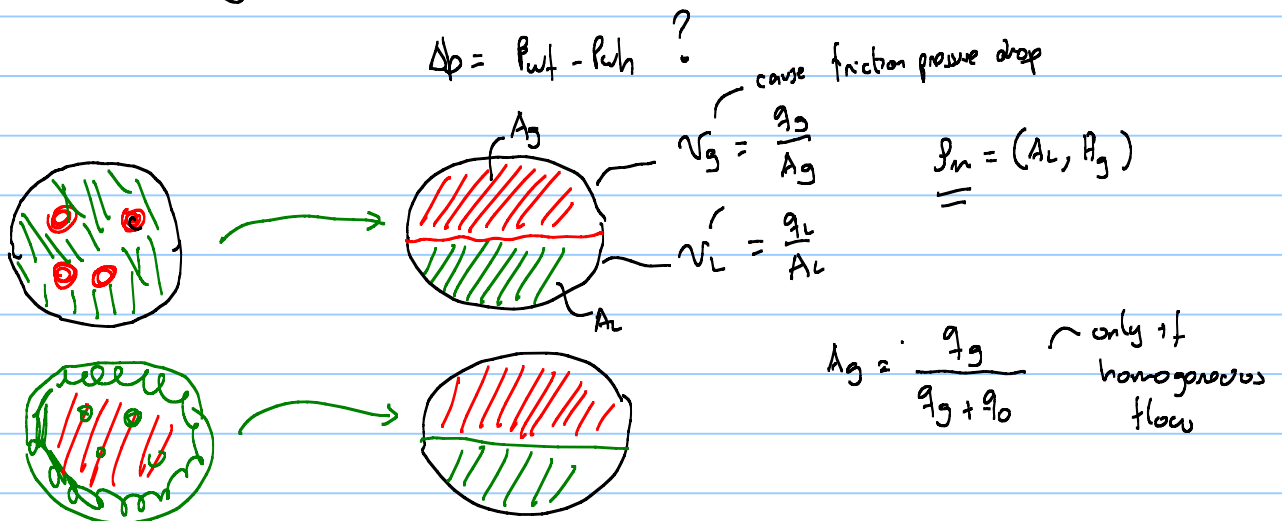 Δp = Pwf - Pwh ?
cause friction pressure drop
Ag
vg = qg / Ag
ρm = (AL, Ag)
vL = qL / AL
AL
Ag = qg / (qg + qo)
only if
homogeneous
flow